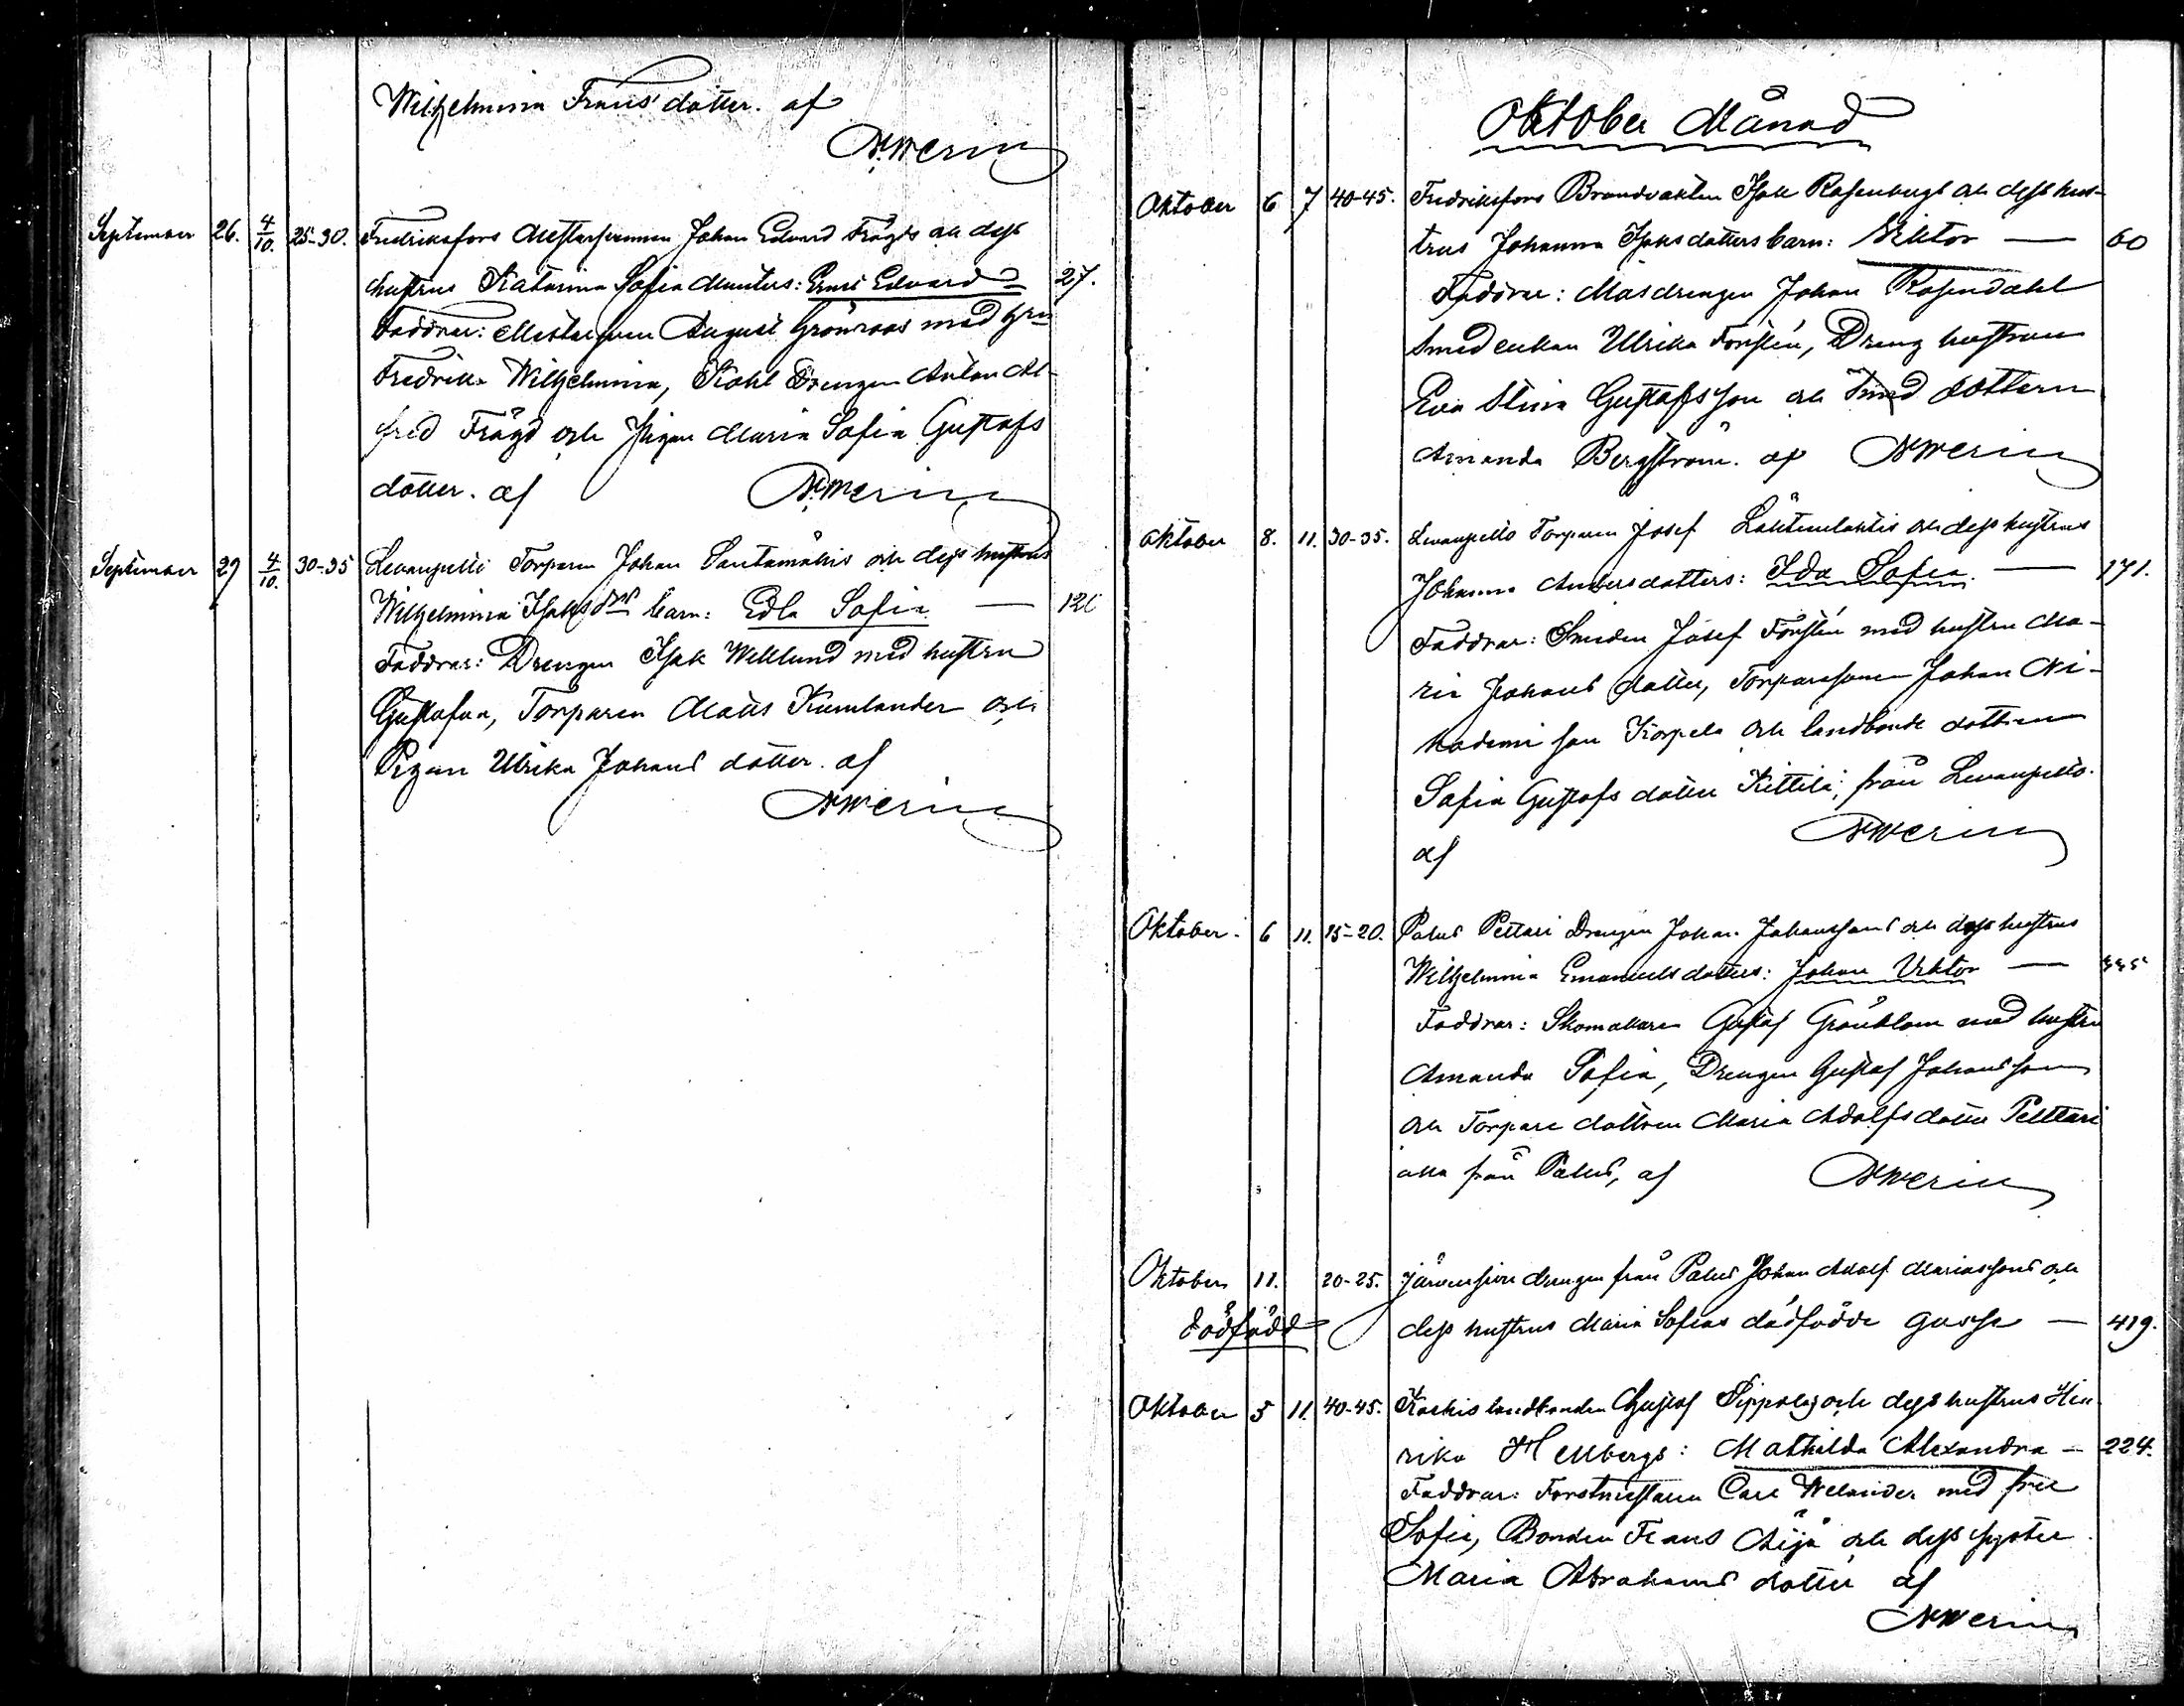 Wilhelmina Frans' dotter. af
N. Werin
September 26. 4/10. 25-30. Fredriksfors Johan Edvard Frågds och dess
hustrus Katarina Sofia Munters: Ernst Edvard 27.
Faddrar: August Grönroos med hru
Fredrika Wilhelmina, Kohl Drengen Anton Al-
fred Frågd och Pigan Maria Sofia Gustafs
dotter. af N. Werin
September 29 4/10. 30-35 Levanpelto Torparen Johan Santamäkis och dess hustrus
Wilhelmina Isaks drs barn: Edla Sofia — 126
Faddrar: Drengen Isak Wiklund med hustru
Gustafva, Torparen Matts Kumlander och
Pigan Ulrika Johans dotter. af
N Werin
Oktober Månad
Oktober 6 7 40-45. Fredriksfors Brandvakten Isak Rosenbergs och dess hus-
trus Johanna Isaksdotters barn: Viktor — 60
Faddrar: Masdrengen Johan Rosendahl
Smed enkan Ulrika Forstén, Dreng hustrun
Eva Stina Gustafsson och Smed dottern
Amanda Bergström. af N Werin
Oktober 8. 11. 30-35. Levanpelto Torparen Josef Lähteenlahtis och dess hustrus
Johanna Andersdotters: Ida Sofia. — 171.
Faddrar: Smeden Josef Forstén med hustru Ma-
ria Johans dotter, Torparesonen Johan Ni-
kodemi son Korpela och landbonde dottren
Sofia Gustafs dotter Kittilä, från Levanpelto.
af N Werin
Oktober. 6 11. 15-20. Palus Pettari Drengen Johan Johanssons och dess hustrus
Wilhelmina Emanuels dotters: Johan Viktor — 335
Faddrar: Skomakaren Gustaf Grönblom med hustru
Amanda Sofia, Drengen Gustaf Johansson
och Torpare dottren Maria Adolfsdotter Pelttari
alla från Palus, af N Werin
Oktober 11. 20-25. Järvensivu drengen från Palus Johan Adolf Mariassons och
dödfödd dess hustrus Maria Sofias dödfödde gosse — 419.
Oktober 5 11. 40-45. Koskis landbonden Gustaf Sippolas och dess hustrus Hen
rika Hellbergs: Mathilda Alexandra — 224.
Faddrar: Forstmästaren Carl Welander med fru
Sofie, Bonden Frans Äijä och dess syster
Maria Abrahams dotter af
N Werin